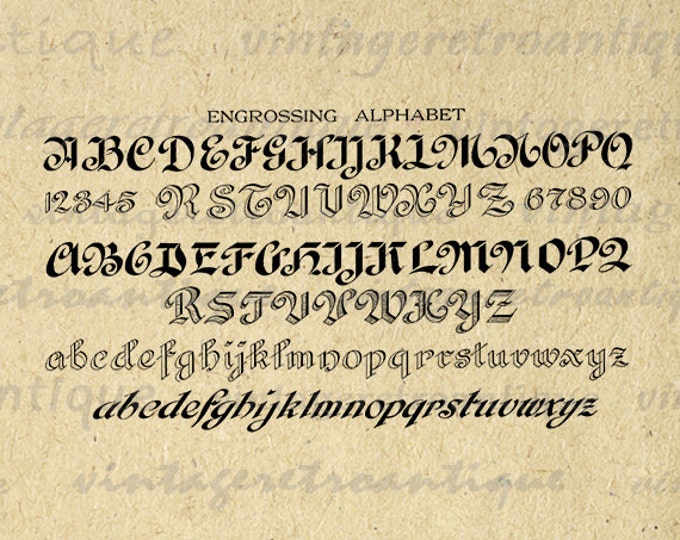 ENGROSSING ALPHABET
ABCDEFGHIJKLMNOPQ
12345 RSTUVWXYZ 67890
ABCDEFGHIJKLMNOPQ
RSTUVWXYZ
abcdefghijklmnopqrrstuvwxyz
abcdefghijklmnopqrstuvwxyz
vintageretroantique